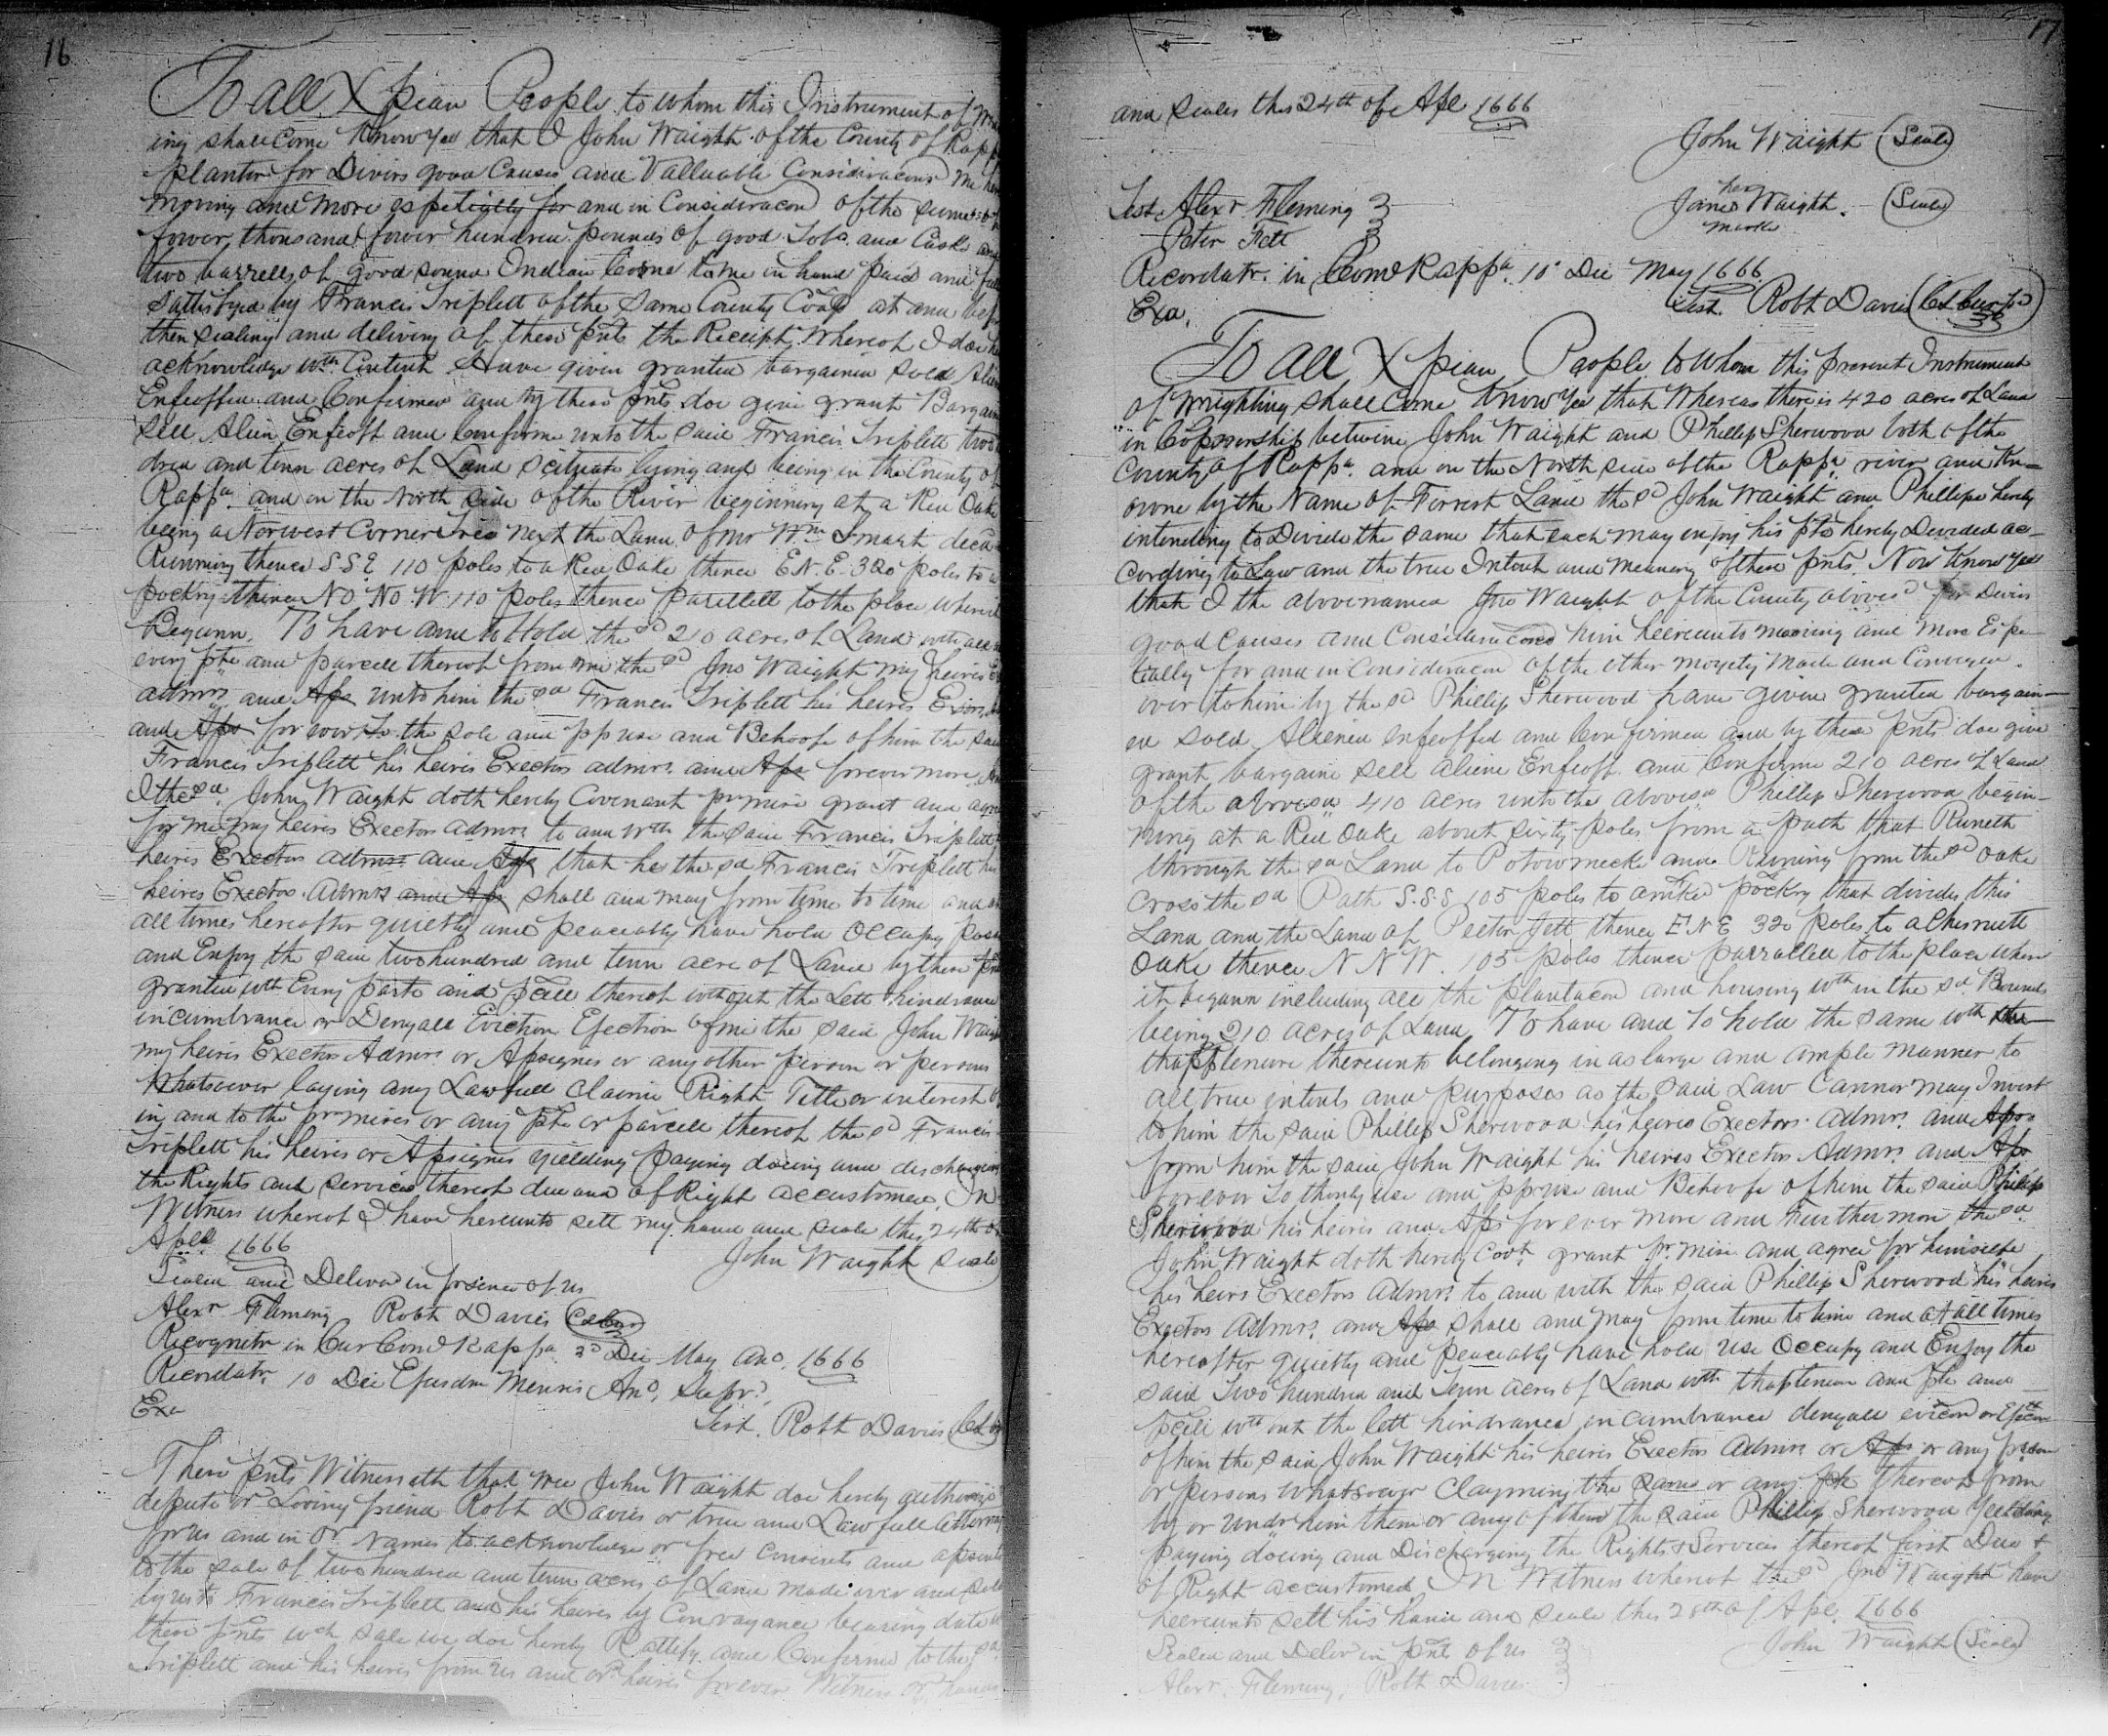 16
To all Xpian People to whom this Instrument of
ing shall Come Know Yee that I John Waight of the County of Rapp
planter for Divers good Causes and Valluable Consideracons me
moving and more espetially for and in Consideracon of the sume of
fower thousand fower hundred pounds of good Tobo. and Caske and
two barrells of good sound Indian Corne to me in hand paid and
sattisfyed by Francis Triplett of the same County Coop at and bef
then sealing and delivery of these pnts the Receipt Whereof I doe
acknowledge wth. Content Have given granted bargained sold Alien
Enfeoffed and Confirmed and by these pnts doe give grant Bargain
sell Alien Enfeoff and Confirme unto the said Francis Triplett two
dred and tenn acres of Land scituate lying and being in the County of
Rappa. and on the North side of the River beginning at a Red Oake
being a Norwest Corner Tree next the Land of mr Wm Smart decd
Running thence S.S.E 110 poles to a Red Oake thence E.N.E. 320 poles to a
pockry thence NO NO W. 110 poles thence parellell to the place where it
begunn. To have and to Hold the sd 210 acres of Land with all
every pte and parcell thereof from me the sd Jno Waight my heires
admrs and Ass unto him the sd Francis Triplett his heires Exors
and Ass for ever To the sole and pp use and Behoofe of him the said
Francis Triplett his heires Exectors admrs. and Ass forever more
I the sd. John Waight doth hereby Covenant prmise grant and agree
for me my heires Exectors admrs. to and wth the said Francis Triplett
heires Exectors admrs. and Ass that he the sd Francis Triplett his
heires Exectors Admrs and Ass shall and may from time to time and
all times hereafter quietly and peaceably have hold Occupy
and Enjoy the said two hundred and tenn acre of Land by these
granted wth Every parte and pcell thereof without the Lett hindrance
incumbrance or Denyall Eviction Ejection of me the said John Waight
my heires Exectors Admrs. or Assignes or any other person or persons
Whatsoever laying any Lawfull Claime Right Title or interest
in and to the prmises or any pte or parcell thereof the sd Francis
Triplett his heires or Assignes yielding paying doeing and discharging
the Rights and services thereof due and of Right accustomed. In
Witness whereof I have hereunto sett my hand and seale this 24th of
Apll 1666
John Waight (Seale)
Sealed and Deliverd in prsence of us
Alexr Fleming Robt Davis
Recognitr in Cur Comd Rappa. 2d Die May Ano. 1666
Recordatr. 10 Die Ejusdm Mensis Ano. Supr.
Exa
Test. Robt Davis
These pnts Witnesseth that wee John Waight doe hereby authorize
depute or Loving friend Robt Davis or true and Lawfull Attorney
for us and in or. Names to acknowledge or free Consents and
to the sale of two hundred and tenn acres of Land made over and sold
by us to Francis Triplett and his heires by Convayance bearing date
these pnts wch sale we doe hereby Rattefy and Confirme to the sd.
Triplett and his heires from us and or. heires forever Witness or. hands
17
and seales this 24th of Apl 1666
John Waight (Seale)
her
Jane Waight. (Seale)
marke
Test Alexr Fleming
Peter Jett
Recordatr. in Comd Rappa. 10 Die May 1666
Test. Robt Davis
Exa.
To all Xpian People to Whom this present Instrument
of Wrighting shall Come Know Yee that Whereas there is 420 acres of Land
in Copnership betwine John Waight and Phillip Sherwood both of the
County of Rappa. and on the North side of the Rappa. river and Kn-
owne by the Name of Forrest Land the sd John Waight and Phillipe hereby
intending to Divide the same that each may enjoy his pte hereby Devided ac-
cording to Law and the true Intent and meaning of these pnts. Now Know Yee
that I the abovenamed Jno Waight of the County abovesd for Divers
good Causes and Consideracons him heereunto moving and more Espe-
tially for and in Consideracon of the other moyety made and Conveyed
over to him by the sd Phillip Sherwood have given granted bargain-
ed sold Aliened enfeoffed and Confirmed and by these pnts doe give
grant bargaine sell aliene Enfeoff and Confirme 210 acres of Land
of the abovesd 410 acres unto the abovesd Phillip Sherwood begin-
ning at a Red Oake about sixty poles from a path that Runeth
through the sd Land to Potowmecke and Running from the sd Oake
Cross the sd Path S.S.E 105 poles to a pockry that divides this
Land and the Land of Peeter Jett thence E N E 320 poles to a Chesnutt
Oake thence N N W. 105 poles thence parrallell to the place where
it begunn including all the plantacon and housing wth in the sd. Bounds
being 210 acres of Land To have and to hold the same wth the
thapptenure thereunto belonging in as large and ample manner to
all true intents and purposes as the said Law Cannor may Invest
to him the said Phillip Sherwood his heires Exectors. admrs. and Ass
from him the said John Waight his heires Exectors Admrs. and Ass
forever To thonly use and pp use and Behoofe of him the said Phillip
Sherwood his heires and Ass for ever more and Furthermore the sd
John Waight doth hereby Covt. grant prmise and agree for himselfe
his heirs Exectors admrs. to and with the said Phillip Sherwood his heires
Exectors admrs. and Ass shall and may from time to time and at all times
hereafter quietly and peaceably have hold use Occupy and Enjoy the
said Two hundred and Tenn acres of Land wth thaptenean and pte and
pcell wth out the lett hindrance incumbrance denyall
of him the said John Waight his heires Exectors admrs or Ass or any prson
or persons whatsoever Clayming the same or any pte thereof from
by or undr him them or any of them the said Phillip Sherwood Yeelding
paying doeing and Discharging the Rights & Services thereof first Due &
of Right accustomed In Witness whereof the sd Jno Waight have
heereunto sett his hand and seale this 28th of Apl. 1666
John Waight (Seale)
Sealed and Delivr in pnts of us
Alexr. Fleming, Robt Davis